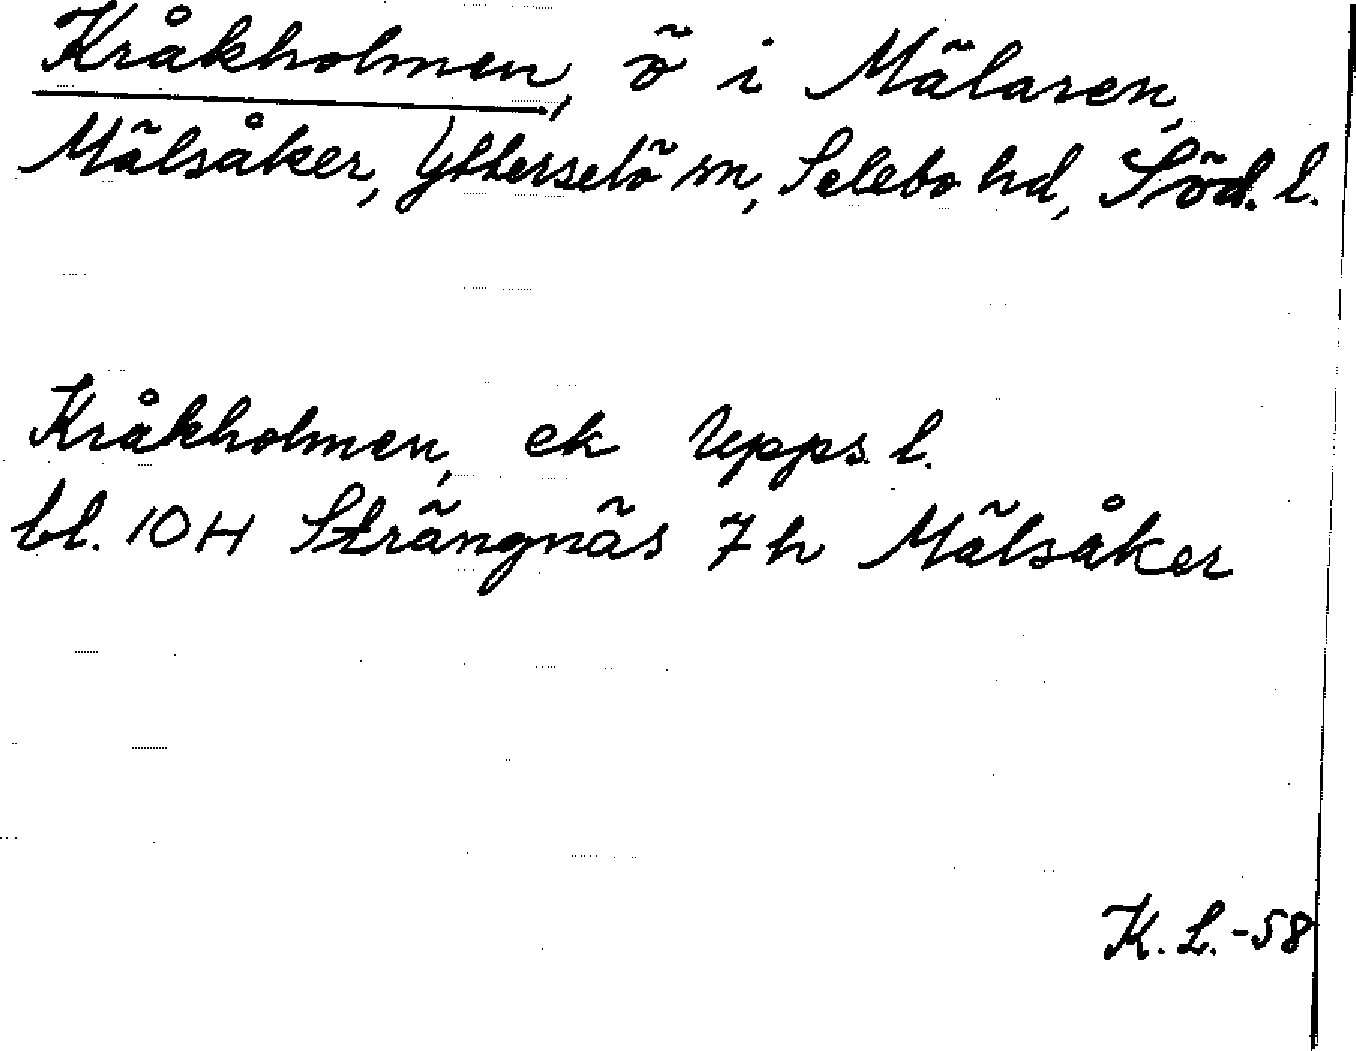 Kråkholmen, ö i Mälaren,
Mälsåker, Ytterselö sn, Selebo hd, Söd. l.
Kråkholmen, ek Upps. l.
bl. 10H Strängnäs 7h Mälsåker
K. L. -58